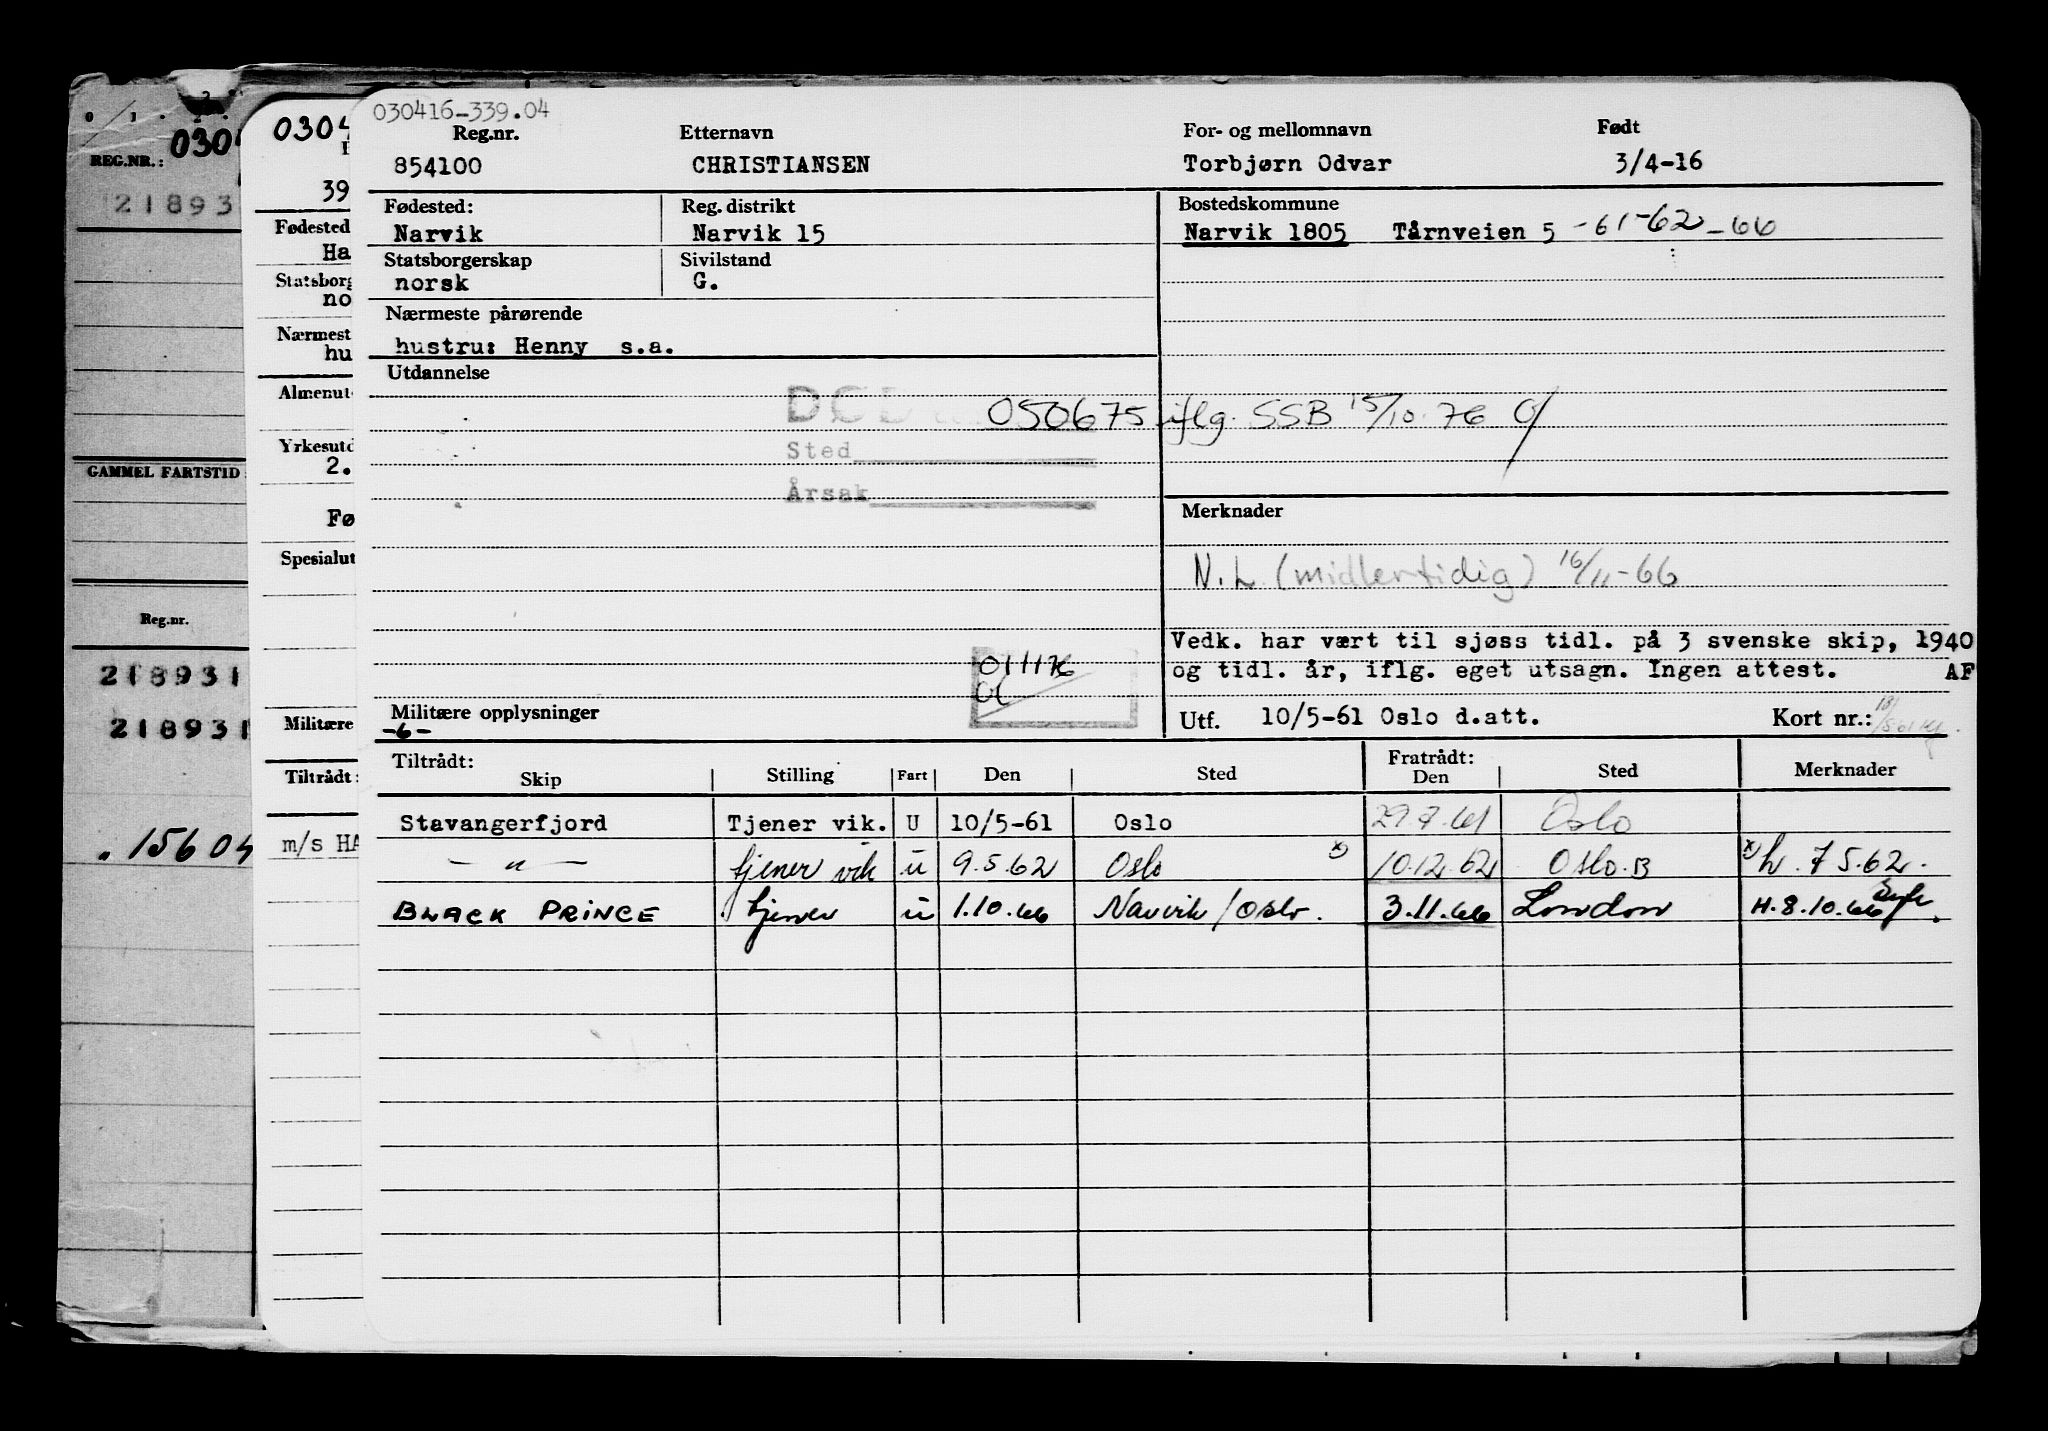 030416-339.04
Reg.nr. Etternavn For- og mellomnavn Født
854100 CHRISTIANSEN Torbjørn Odvar 3/4-16
Fødested: Reg. distrikt Bostedskommune
Narvik Narvik 15 Narvik 1805 Tårnveien 5 -61-62-66
Statsborgerskap Sivilstand
norsk G.
Nærmeste pårørende
hustru: Henny s.a.
Utdannelse
DØD 050675 iflg. SSB 15/10-76
Sted
Årsak
Merknader
N.L. (midlertidig) 16/11-66
Vedk. har vært til sjøss tidl. på 3 svenske skip, 1940
og tidl. år, iflg. eget utsagn. Ingen attest. AF
011176
Militære opplysninger
-6-
Utf. 10/5-61 Oslo d.att. Kort nr.:
Tiltrådt: Fratrådt:
Skip Stilling Fart Den Sted Den Sted Merknader
Stavangerfjord Tjener vik. U 10/5-61 Oslo 29.7.61 Oslo
— " — tjener vik u 9.5.62 Oslo x) 10.12.62 Oslo.B x) h. 7.5.62.
BLACK PRINCE tjener u 1.10.66 Narvik/Oslo. 3.11.66 London H.8.10.66
0304
39
Fødested
Ha
Statsborg
no
Nærmest
hu
Almenut
Yrkesutd
2.
Fø
Spesialut
Militære
Tiltrådt:
m/s HA
0 1
REG.NR.: 0304
218931
GAMMEL FARTSTID
Reg.nr.
218931
218931
.15604